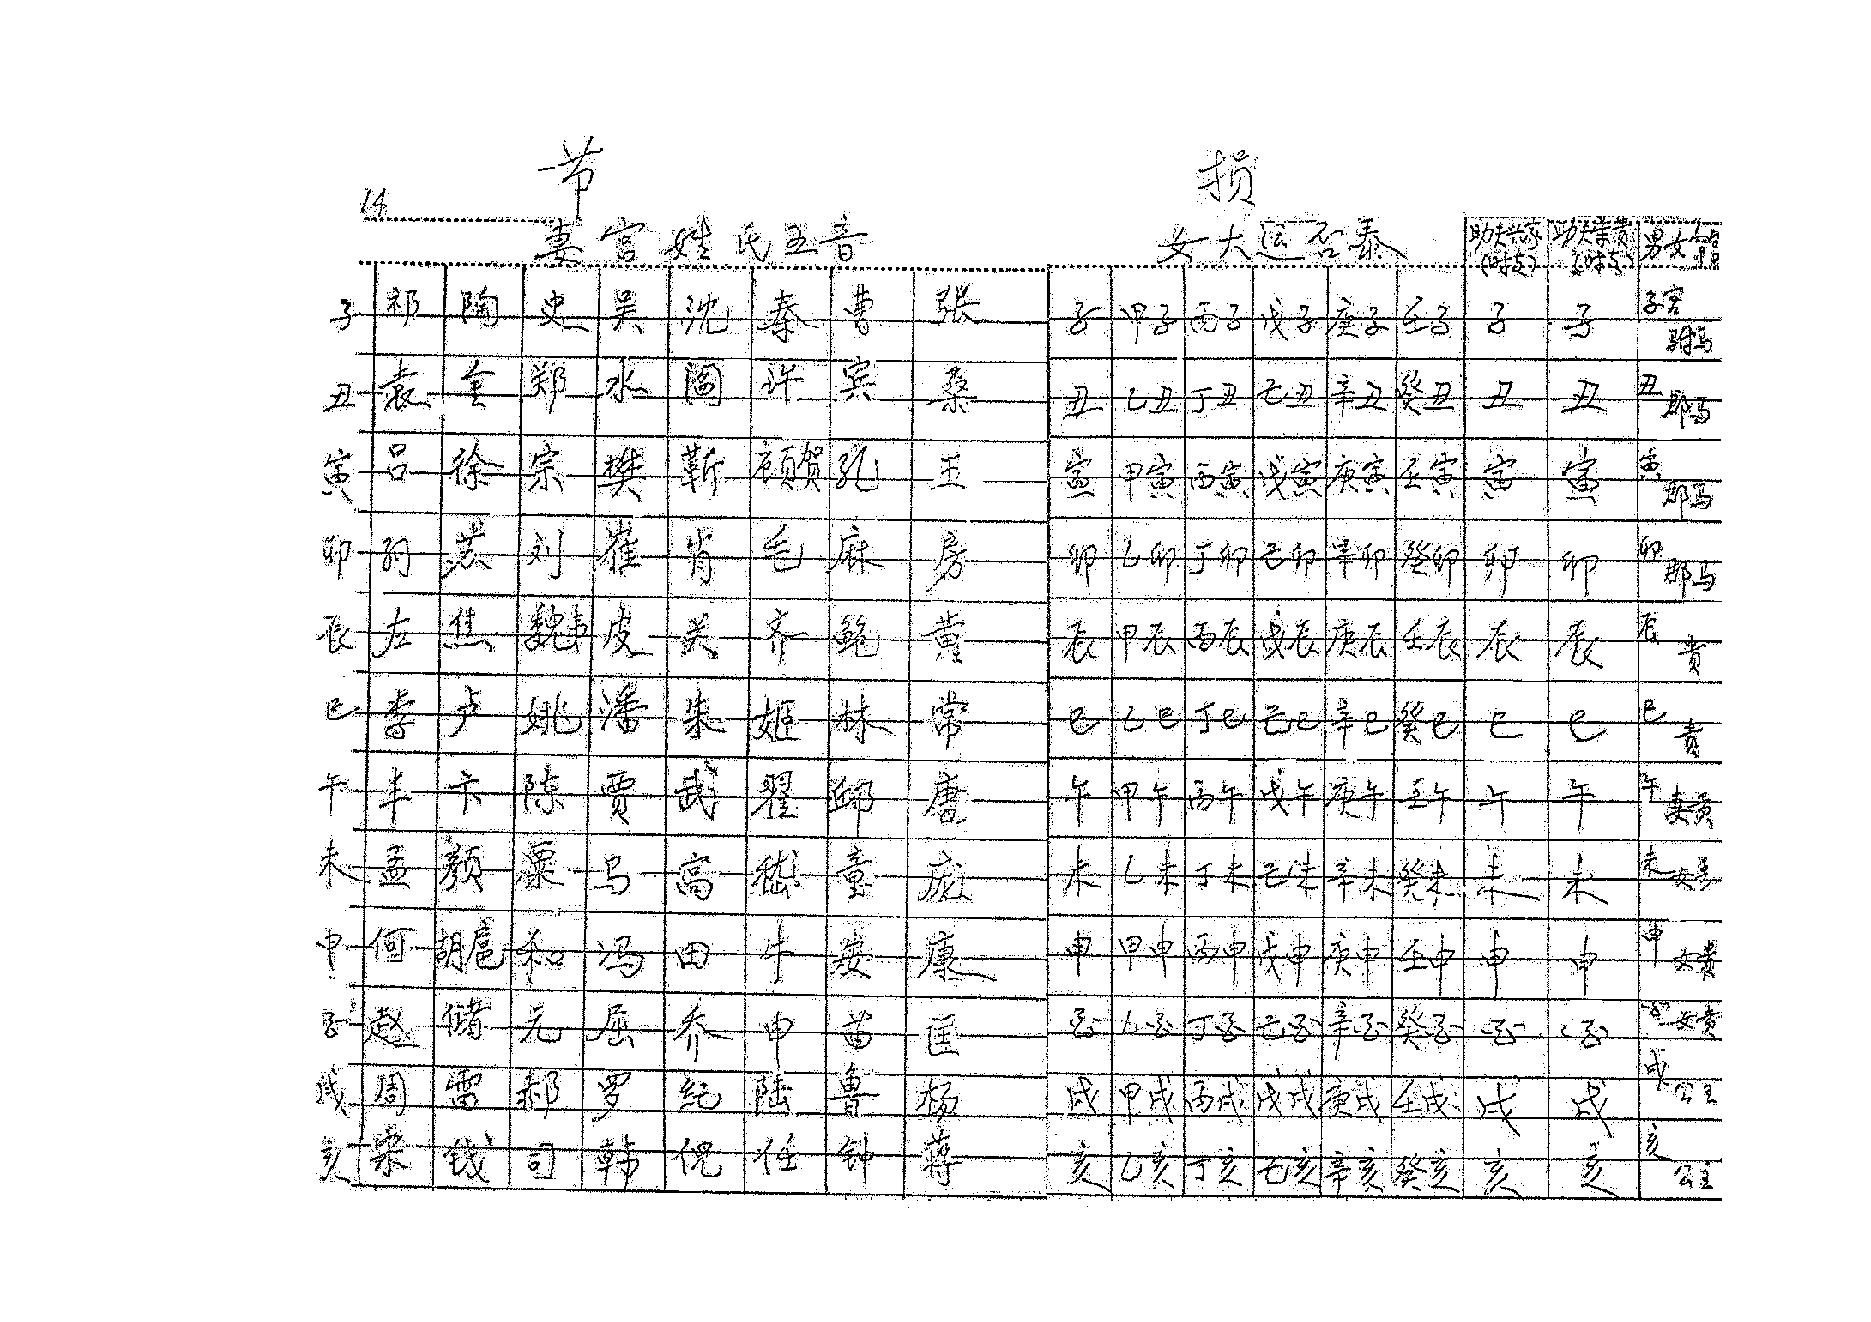 节 损
14
妻宫姓氏五音 女大运否泰 助夫兴家(时支) 助夫荣贵(时支) 男女
子 祁 陶 史 吴 沈 秦 曹 张 子 甲子 丙子 戊子 庚子 壬子 子 子 子宫 驸马
丑 袁 金 郑 水 阎 许 宾 桑 丑 乙丑 丁丑 己丑 辛丑 癸丑 丑 丑 丑 郡马
寅 吕 徐 宗 樊 靳 顾贺 孔 王 寅 甲寅 丙寅 戊寅 庚寅 壬寅 寅 寅 寅 郡马
卯 苏 刘 崔 肖 毛 麻 房 卯 乙卯 丁卯 己卯 辛卯 癸卯 卯 卯 卯 郡马
辰 左 焦 魏韦 皮 关 齐 鲍 黄 辰 甲辰 丙辰 戊辰 庚辰 壬辰 辰 辰 辰 贵
巳 李 卢 姚 潘 朱 姬 林 常 巳 乙巳 丁巳 己巳 辛巳 癸巳 巳 巳 巳 贵
午 丰 卞 陈 贾 武 翟 邱 唐 午 甲午 丙午 戊午 庚午 壬午 午 午 午 妻贵
未 孟 颜 粟 马 高 嵇 童 庞 未 乙未 丁未 己未 辛未 癸未 未 未 未
申 何 胡扈 和 冯 田 牛 娄 康 申 甲申 丙申 戊申 庚申 壬申 申 申 申 女贵
酉 赵 储 元 屈 乔 申 苗 匡 酉 乙酉 丁酉 己酉 辛酉 癸酉 酉 酉 酉 女贵
戌 周 雷 郝 罗 纪 陆 鲁 杨 戌 甲戌 丙戌 戊戌 庚戌 壬戌 戌 戌 戌 公主
亥 宋 钱 司 韩 倪 任 钟 蒋 亥 乙亥 丁亥 己亥 辛亥 癸亥 亥 亥 亥 公主